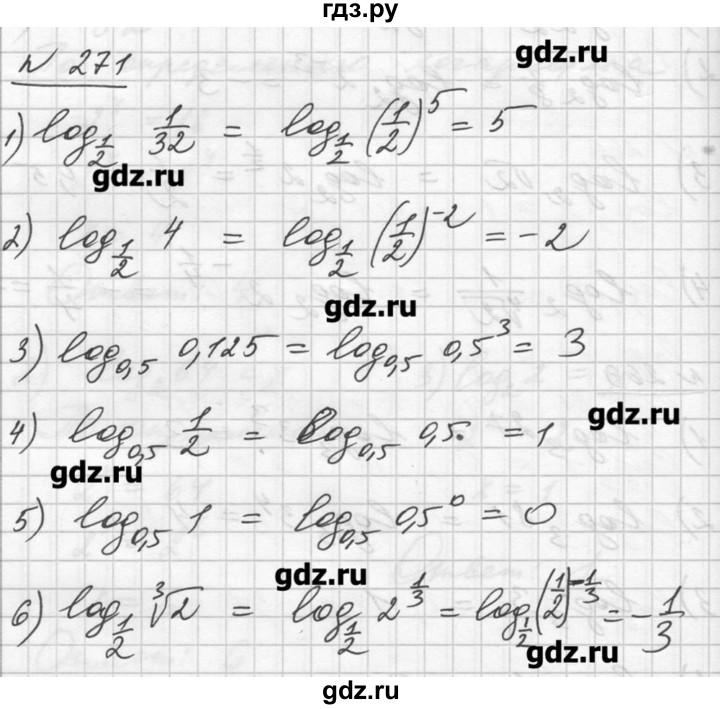 гдз.ру
gdz.ru
№ 271
1) log_{1/2} 1/32 = log_{1/2} (1/2)^5 = 5
gdz.ru
2) log_{1/2} 4 = log_{1/2} (1/2)^{-2} = -2
gdz.ru
3) log_{0,5} 0,125 = log_{0,5} 0,5^3 = 3
gdz.ru
4) log_{0,5} 1/2 = log_{0,5} 0,5 = 1
gdz.ru
5) log_{0,5} 1 = log_{0,5} 0,5^0 = 0
gdz.ru
6) log_{1/2} ∛2 = log_{1/2} 2^{1/3} = log_{1/2} (1/2)^{-1/3} = -1/3
gdz.ru
gdz.ru